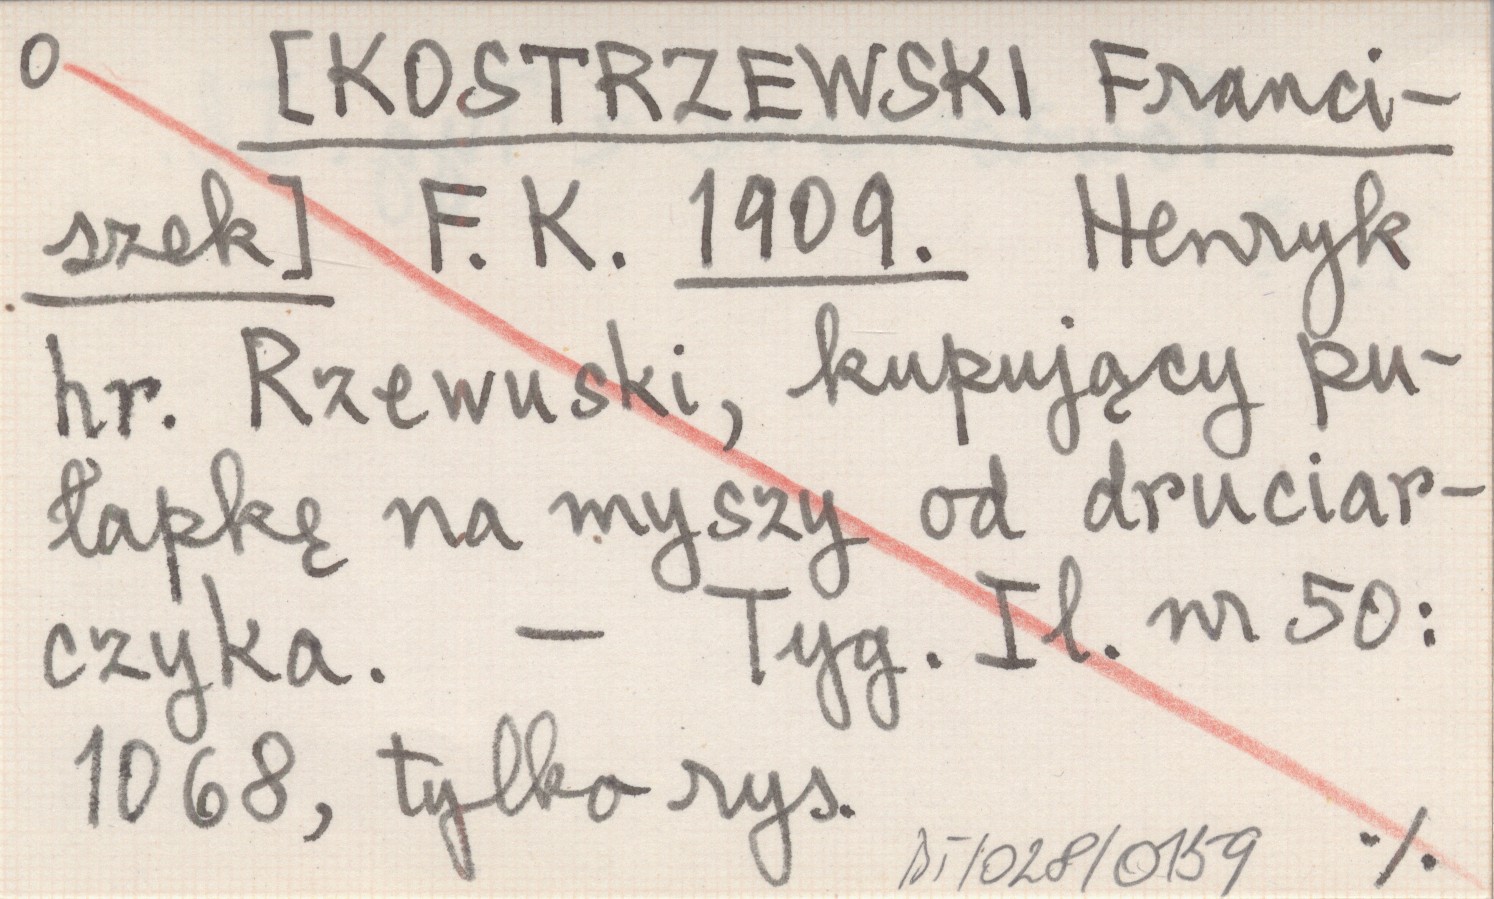 O [KOSTRZEWSKI Franci-
szek] F. K. 1909. Henryk
hr. Rzewuski, kupujący pu-
łapkę na myszy od druciar-
czyka. — Tyg. Il. nr 50:
1068, tylko rys.
DT/028/0159 ·/.